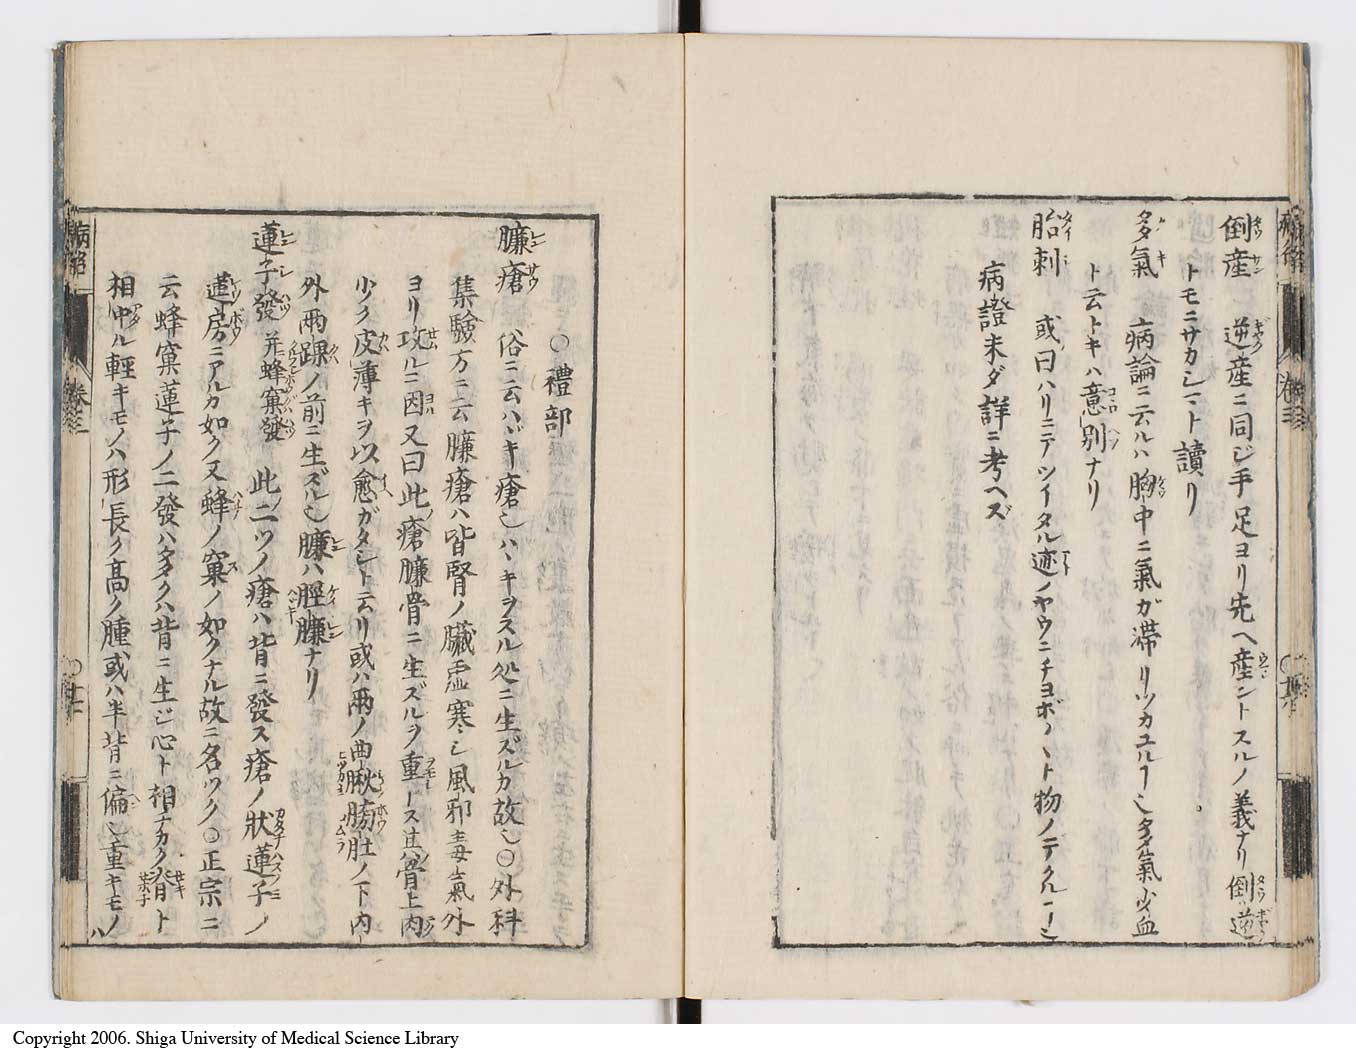 倒産 逆産ニ同ジ手足ヨリ先ヘ産ントスルノ義ナリ倒逆
トモニサカシマト讀リ
多氣 病論ニ云ルハ胸中ニ氣ガ滞リツカユルヿ也多氣少血
ト云トキハ意別ナリ
胎刺 或曰ハリニテツイタル迹ノヤウニチヨボ〱ト物ノデクルヿ也
病證未ダ詳ニ考ヘズ
病名
巻三
○禮部
臁瘡 俗ニ云ハヾキ瘡也ハヾキヲスル処ニ生ズルカ故也○外科
集驗方ニ云臁瘡ハ皆腎ノ臓虚寒シ風邪毒氣外
ヨリ攻ルニ因又曰此瘡臁骨ニ生ズルヲ重トス其骨上肉
少ク皮薄キヲ以愈ガタシト云リ或ハ兩ノ曲䐐胯肚ノ下内
外兩踝ノ前ニ生ズル也臁ハ脛臁ナリ
蓮子發 并蜂窠發 此二ツノ瘡ハ背ニ發ス瘡ノ狀蓮子ノ
蓮房ニアルカ如ク又蜂ノ窠ノ如クナル故ニ名ツク○正宗ニ
云蜂窠蓮子ノ二發ハ多クハ背ニ生ジ心ト相ナカク脊ト
相中ル輕キモノハ形長ク高ク腫或ハ半背ニ偏也重キモノハ
巻三
Copyright 2006. Shiga University of Medical Science Library